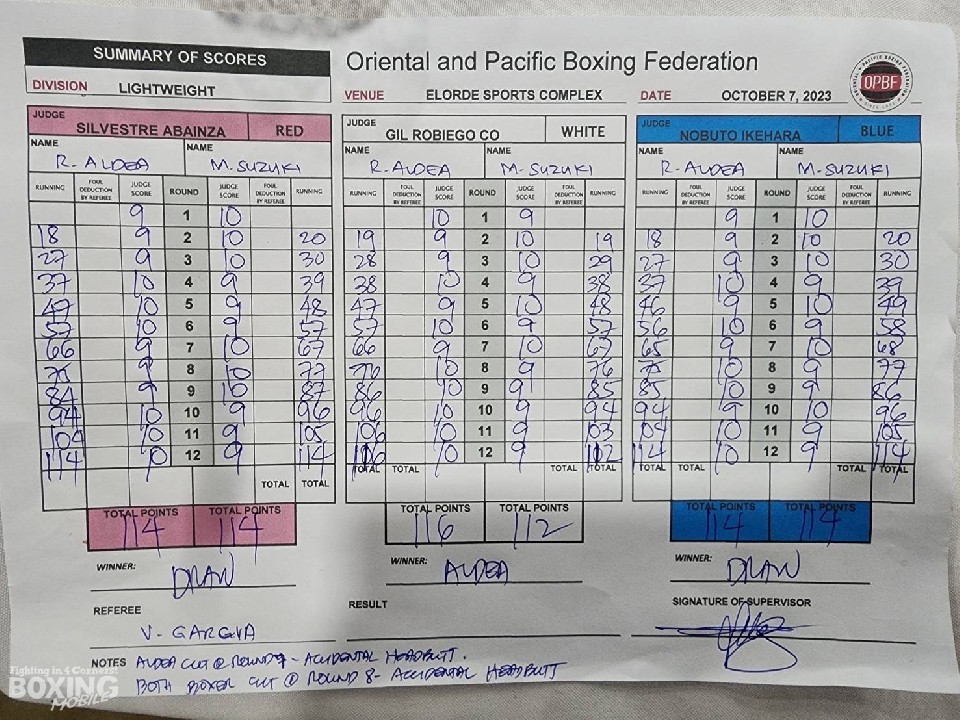 SUMMARY OF SCORES
Oriental and Pacific Boxing Federation
OPBF
DIVISION LIGHTWEIGHT
VENUE ELORDE SPORTS COMPLEX
DATE OCTOBER 7, 2023
JUDGE SILVESTRE ABAINZA RED
NAME R. ALDEA NAME M. SUZUKI
RUNNING FOUL DEDUCTION BY REFEREE JUDGE SCORE ROUND JUDGE SCORE FOUL DEDUCTION BY REFEREE RUNNING
9 1 10
18 9 2 10 20
27 9 3 10 30
37 10 4 9 39
47 10 5 9 48
57 10 6 9 57
66 9 7 10 67
75 9 8 10 77
84 9 9 10 87
94 10 10 9 96
104 10 11 9 105
114 10 12 9 114
TOTAL TOTAL
TOTAL POINTS TOTAL POINTS
114 114
WINNER: DRAW
JUDGE GIL ROBIEGO CO WHITE
NAME R. ALDEA NAME M. SUZUKI
RUNNING FOUL DEDUCTION BY REFEREE JUDGE SCORE ROUND JUDGE SCORE FOUL DEDUCTION BY REFEREE RUNNING
10 1 9
19 9 2 10 19
28 9 3 10 29
38 10 4 9 38
47 9 5 10 48
57 10 6 9 57
66 9 7 10 67
76 10 8 9 76
86 10 9 9 85
96 10 10 9 94
106 10 11 9 103
10 12 9
TOTAL TOTAL TOTAL TOTAL
TOTAL POINTS TOTAL POINTS
116 112
WINNER: ALDEA
JUDGE NOBUTO IKEHARA BLUE
NAME R. ALDEA NAME M. SUZUKI
RUNNING FOUL DEDUCTION BY REFEREE JUDGE SCORE ROUND JUDGE SCORE FOUL DEDUCTION BY REFEREE RUNNING
9 1 10
18 9 2 10 20
27 9 3 10 30
37 10 4 9 39
46 9 5 10 49
56 10 6 9 58
65 9 7 10 68
75 10 8 9 77
85 10 9 9 86
94 9 10 10 96
104 10 11 9 105
114 10 12 9 114
TOTAL TOTAL TOTAL TOTAL
TOTAL POINTS TOTAL POINTS
114 114
WINNER: DRAW
REFEREE
V. GARCIA
RESULT
SIGNATURE OF SUPERVISOR
NOTES ALDEA CUT @ ROUND 7 - ACCIDENTAL HEADBUTT.
BOTH BOXER CUT @ ROUND 8 - ACCIDENTAL HEADBUTT
Fighting in 4 Corners!
BOXING
MOBILE